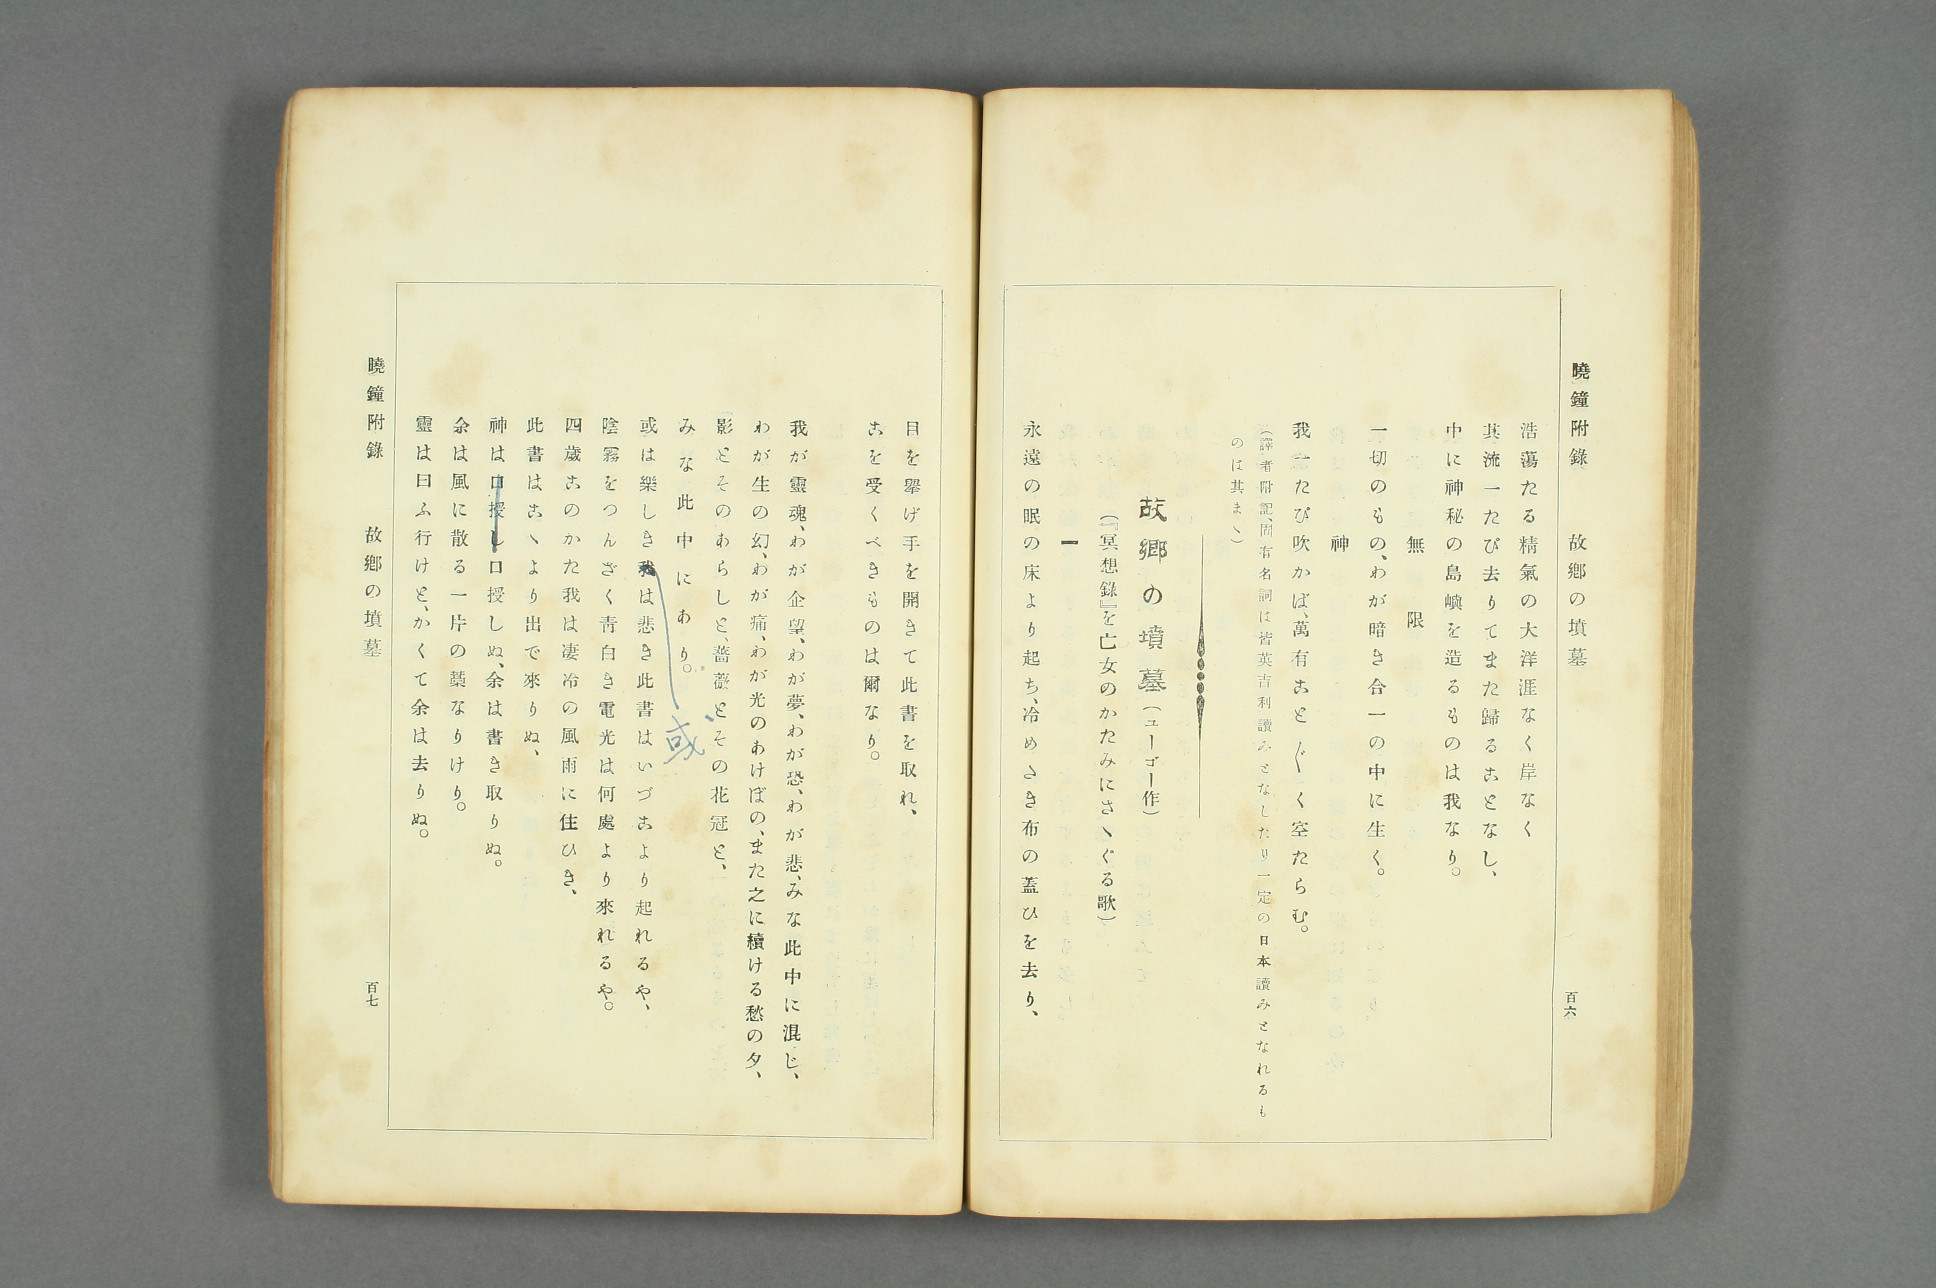 曉鐘附錄　故鄕の墳墓　百六
浩蕩たる精氣の大洋涯なく岸なく
其流一たび去りてまた歸るゝことなし、
中に神秘の島嶼を造るものは我なり。
無限
一切のもの、わが暗き合一の中に生く。
神
我一たび吹かば、萬有ことごとく空たらむ。
（譯者附記、固有名詞は皆英吉利讀みとなしたり一定の日本讀みとなれるも
のは其まゝ）
故鄕の墳墓（ユーゴー作）
（『冥想錄』を亡女のかたみにさゝぐる歌）
一
永遠の眠の床より起ち、冷めたき布の蓋ひを去り、
目を擧げ手を開きて此書を取れ、
こを受くべきものは爾なり。
我が靈魂、わが企望、わが夢、わが恐、わが悲、みな此中に混じ、
わが生の幻、わが痛、わが光のあけぼの、また之に續ける愁の夕、
影とそのあらしと、薔薇とその花冠と、
みな此中にあり。
或は樂しき我は悲き此書はいづこより起れるや、
或
陰霧をつんざく靑白き電光は何處より來れるや。
四歲このかた我は凄冷の風雨に住ひき、
此書はこゝより出で來りぬ、
神は口授し口授しぬ、余は書き取りぬ。
余は風に散る一片の藁なりけり。
靈は曰ふ行けと、かくて余は去りぬ。
曉鐘附錄　故鄕の墳墓　百七